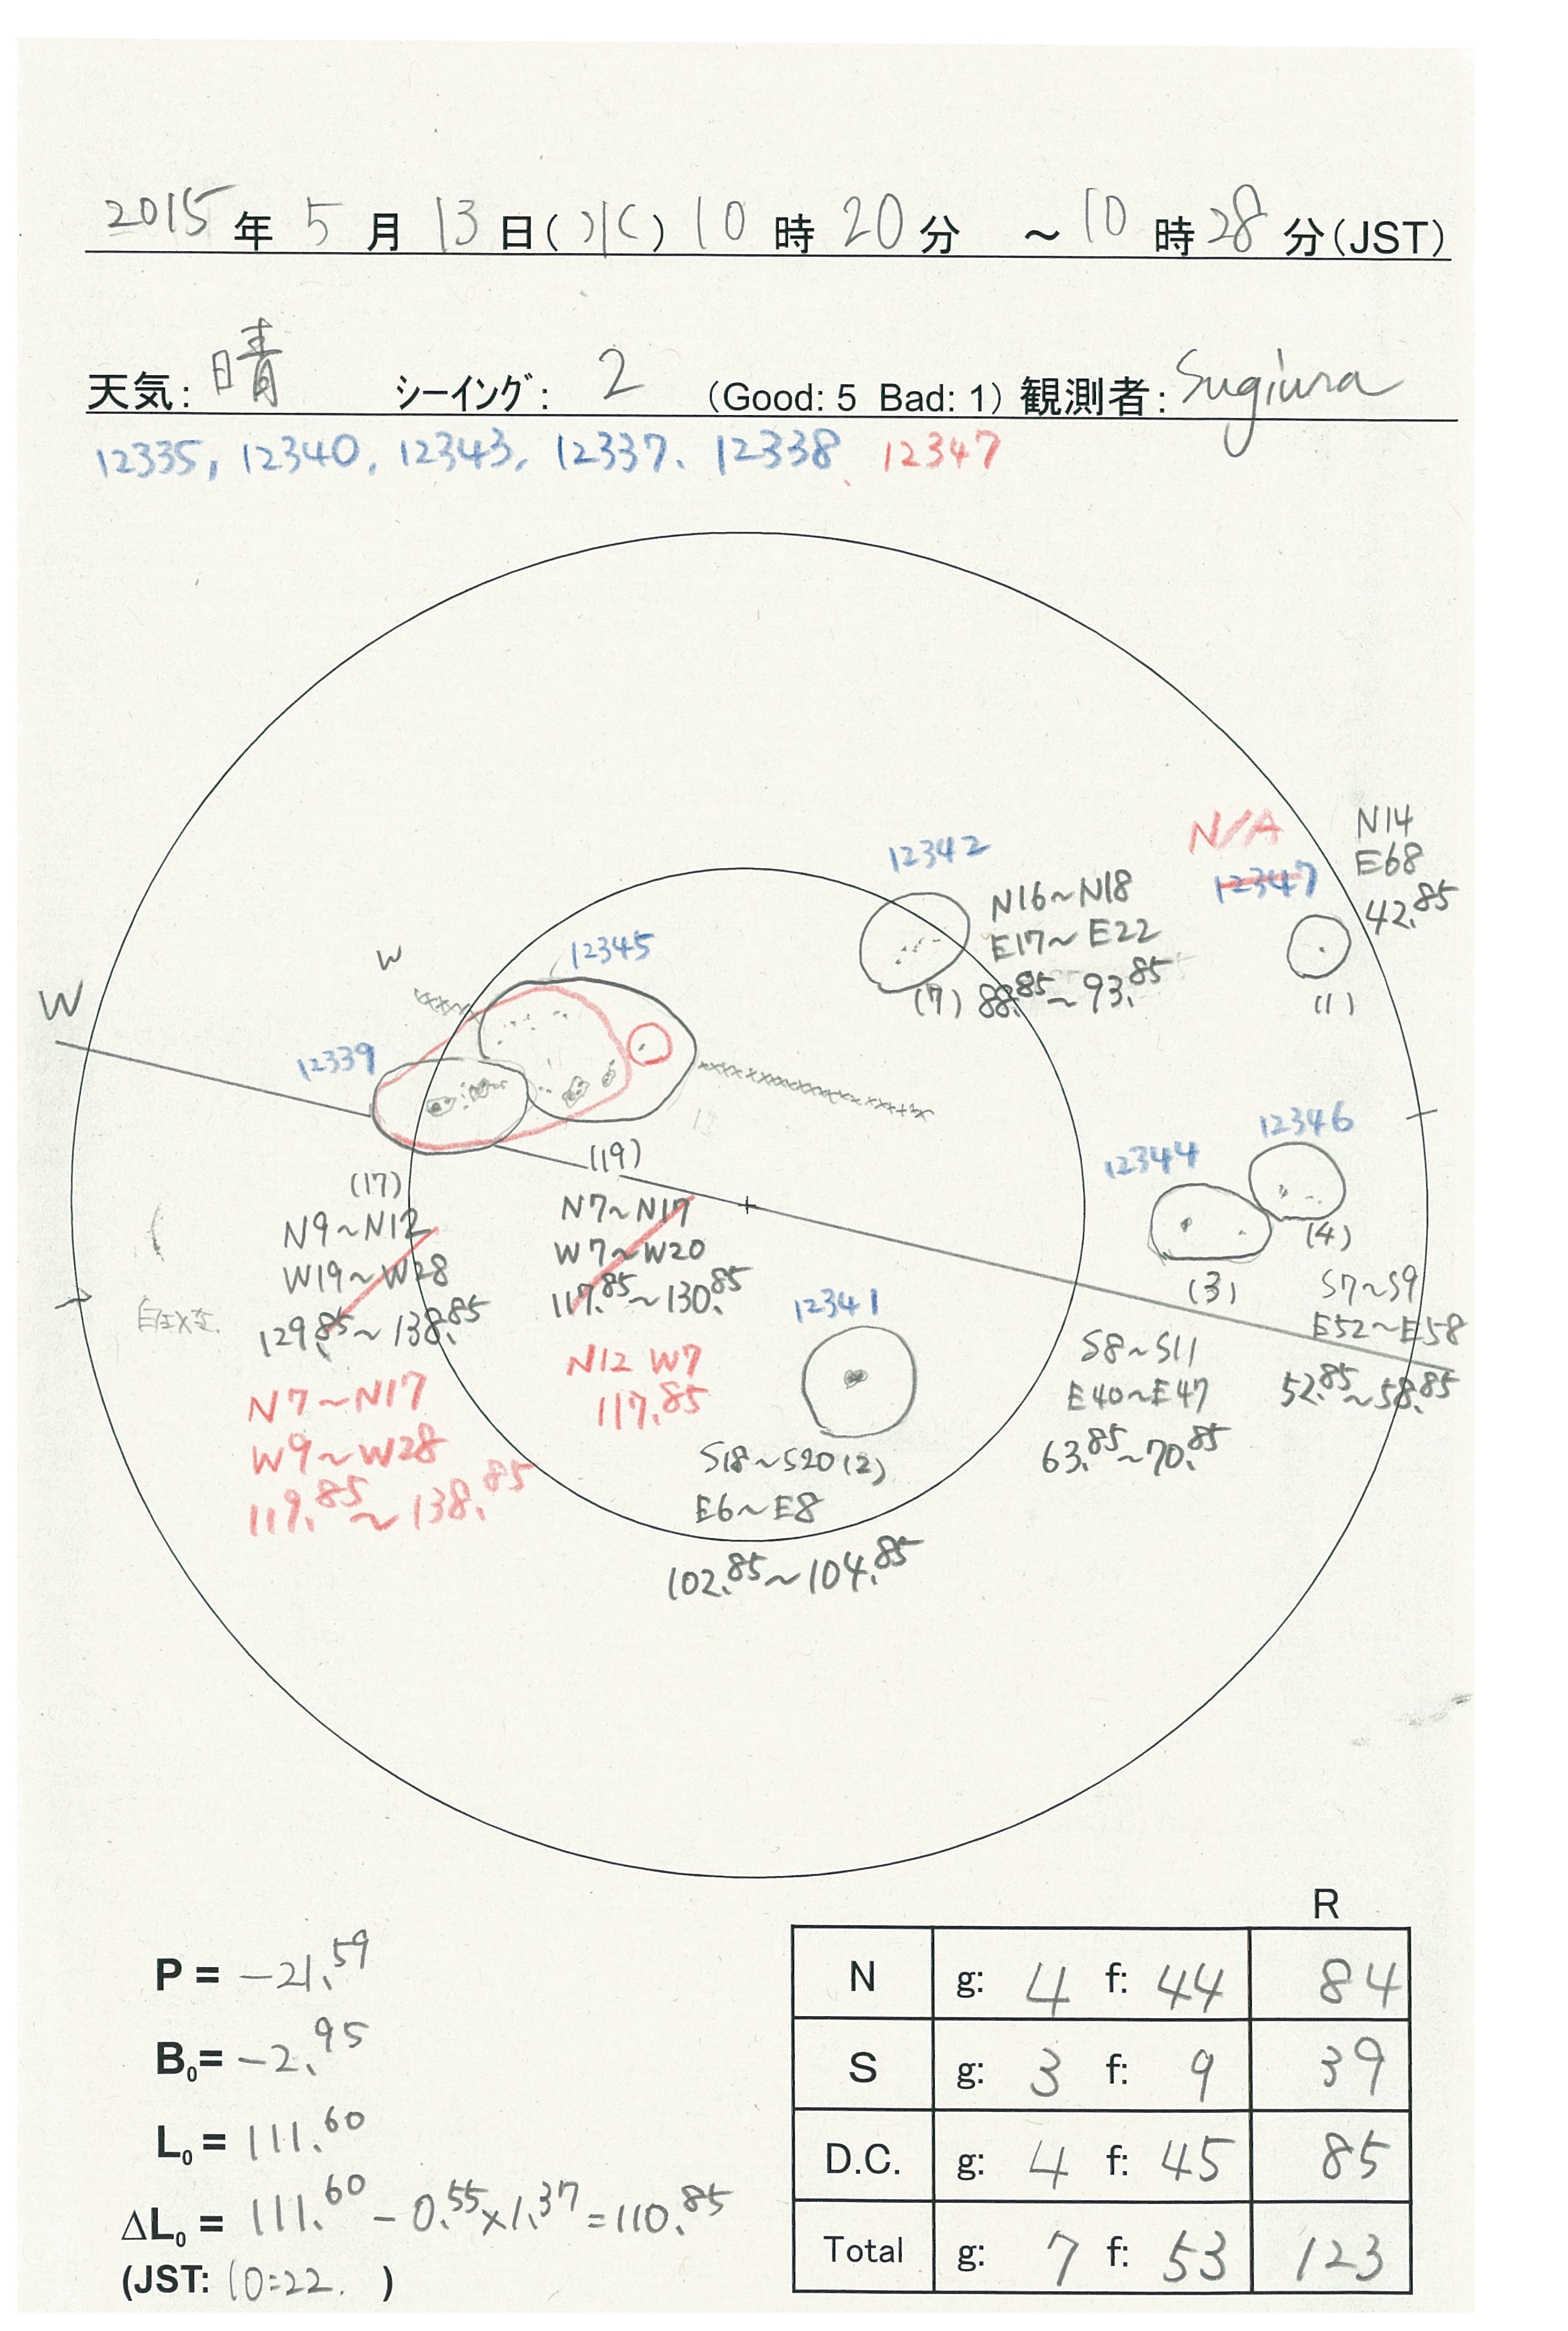 2015年 5月 13日(水) 10時 20分 ～10時 28分(JST)
天気: 晴 シーイング: 2 (Good: 5 Bad: 1) 観測者: Sugiura
12335, 12340, 12343, 12337, 12338, 12347
N/A
N14
12342
E68
12347
42.85
N16~N18
E17~E22
(7) 88.85~93.85
(1)
12345
W
W
12339
12346
12344
(19)
(17)
N7~N17
N9~N12
W7~W20
W19~W28
117.85~130.85
129.85~138.85
(4)
(3)
S7~S9
E52~E58
52.85~58.85
12341
N12 W7
117.85
S8~S11
E40~E47
63.85~70.85
N7~N17
W9~W28
119.85~138.85
S18~S20 (2)
E6~E8
102.85~104.85
R
P = -21.59
N g: 4 f: 44 84
B₀= -2.95
S g: 3 f: 9 39
L₀ = 111.60
D.C. g: 4 f: 45 85
ΔL₀ = 111.60 - 0.55×1.37 = 110.85
Total g: 7 f: 53 123
(JST: 10:22. )